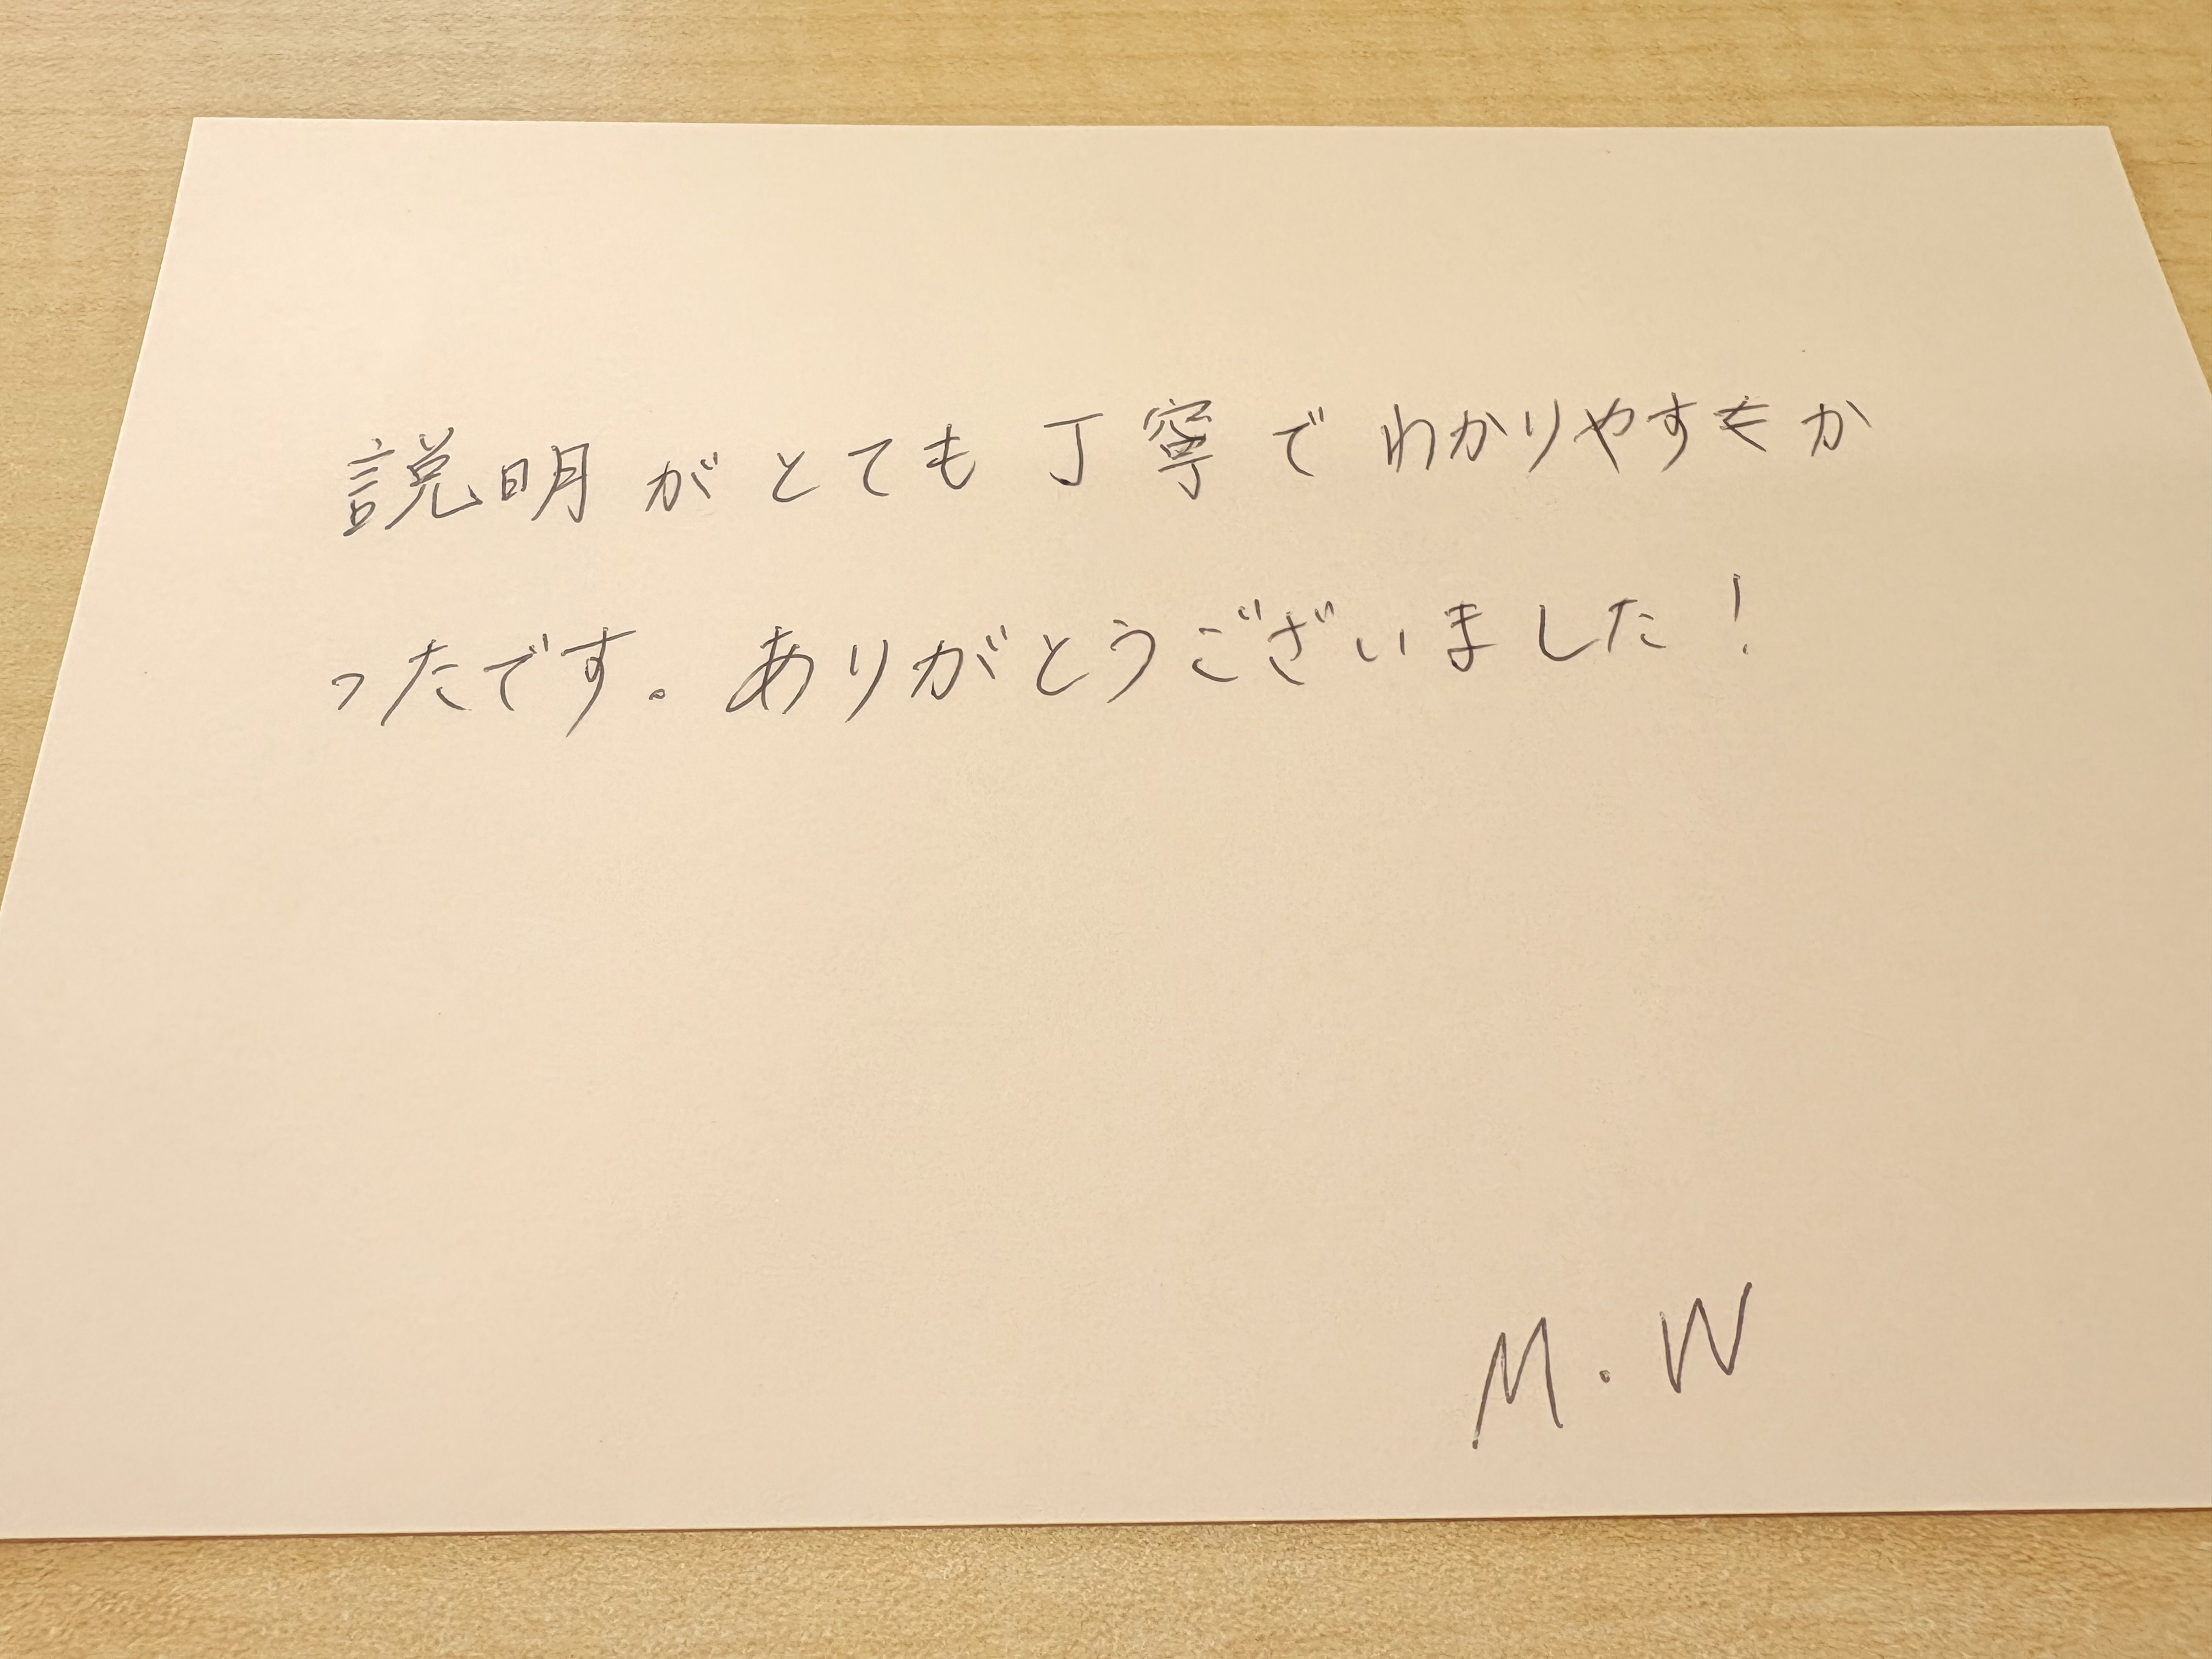 説明がとても丁寧でわかりやすくか
ったです。ありがとうございました！
M.W